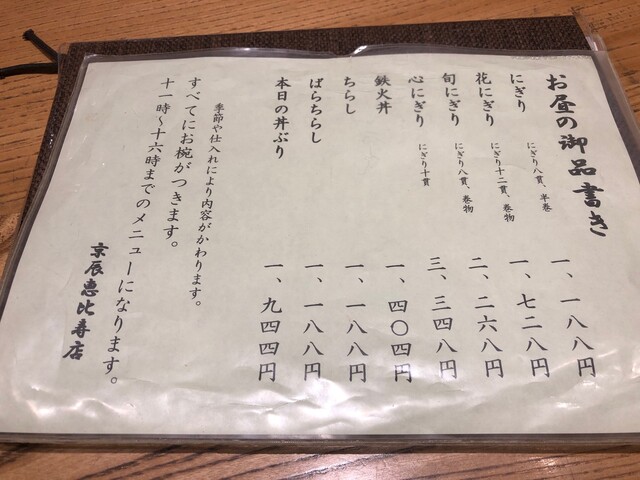 お昼の御品書き
にぎり にぎり八貫、半巻 一、一八八円
花にぎり にぎり十二貫、巻物 一、七二八円
旬にぎり にぎり八貫、巻物 二、二六八円
心にぎり にぎり十貫 三、三四八円
鉄火丼 一、四〇四円
ちらし 一、一八八円
ばらちらし 一、一八八円
本日の丼ぶり 一、九四四円
季節や仕入れにより内容がかわります。
すべてにお椀がつきます。
十一時～十六時までのメニューになります。
京辰恵比寿店